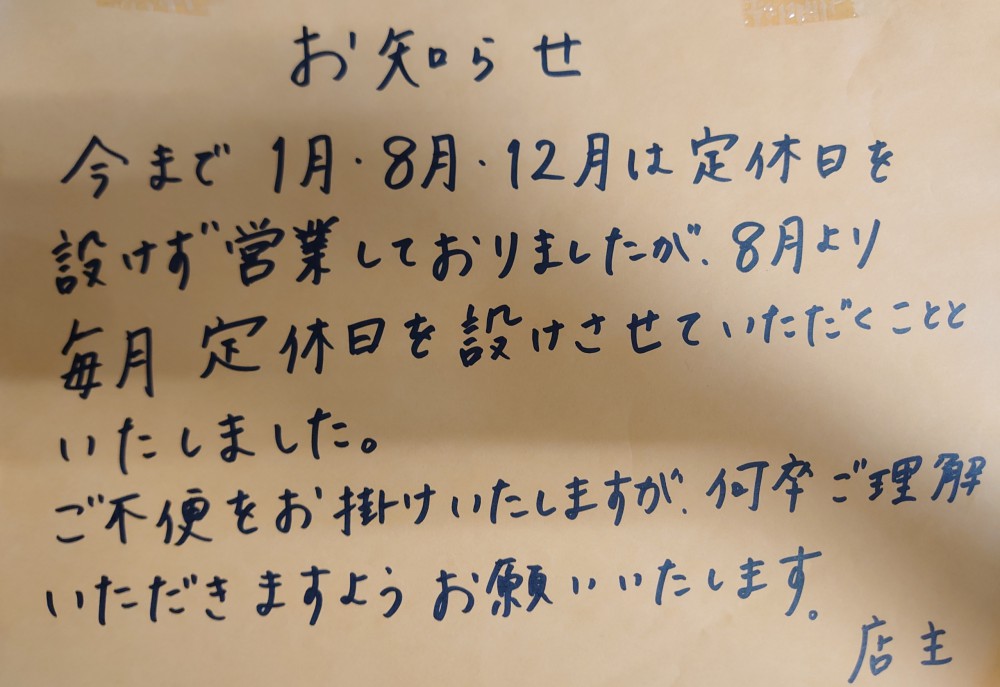 お知らせ
今まで 1月・8月・12月は定休日を
設けず営業しておりましたが、8月より
毎月 定休日を設けさせていただくことと
いたしました。
ご不便をお掛けいたしますが、何卒ご理解
いただきますようお願いいたします。
店主